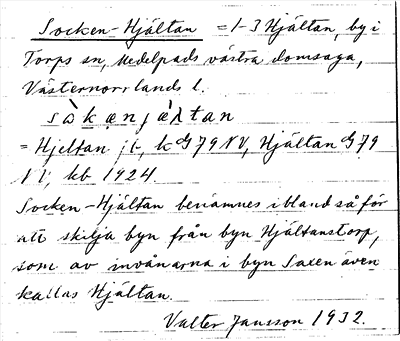 Socken-Hjältan = 1-3 Hjältan, by i
Torps sn, Medelpads västra domsaga,
Västernorrlands l.
sòkænjæ̀ltan
= Hjeltan jb, k G79NV, Hjältan G79
NV, kb 1924.
Socken-Hjältan benämnes ibland så för
att skilja byn från byn Hjältanstorp,
som av invånarna i byn Saxen även
kallas Hjältan.
Valter Jansson 1932.